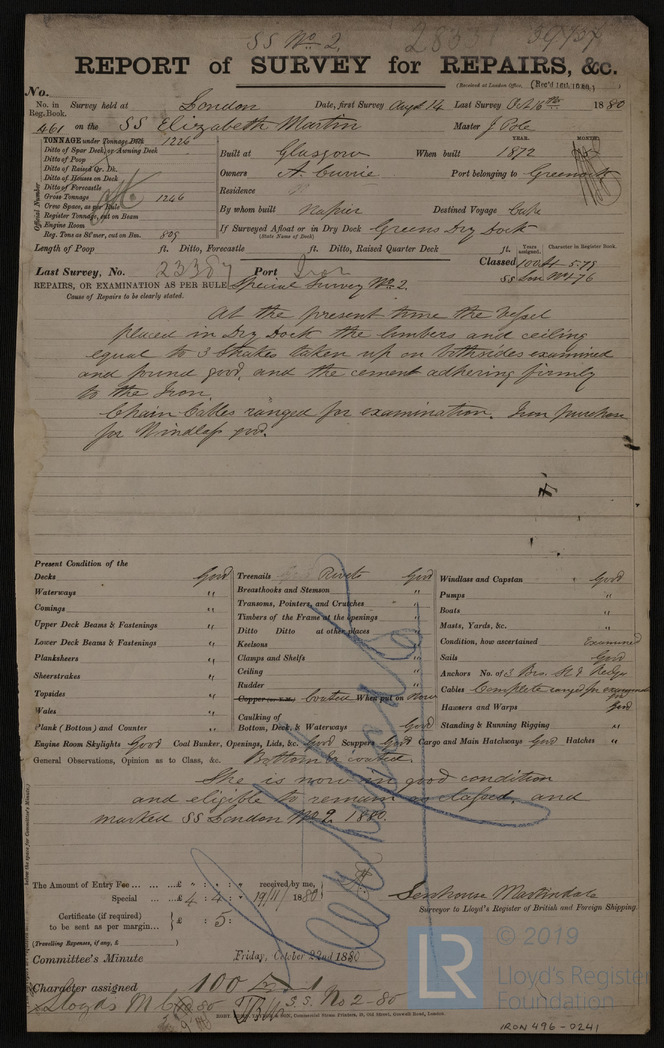 SS No. 2.
REPORT of SURVEY for REPAIRS, &c.
(Received at London Office,
No.
No. in Reg. Book. Survey held at London Date, first Survey Augst 14 Last Survey Oct 16th 1880
461 on the SS Elizabeth Martin Master J Pole
TONNAGE under Tonnage Deck 1226
Ditto of Spar Deck, or Awning Deck
Ditto of Poop
Ditto of Raised Qr. Dk.
Ditto of Houses on Deck
Ditto of Forecastle
Gross Tonnage 1246
Crew Space, as per Rule
Register Tonnage, cut on Beam
Engine Room
Reg. Tons as St'mer, cut on Bm. 809
Official Number
YEAR. MONTH.
Built at Glasgow When built 1872
Owners A Currie Port belonging to Greenock
Residence
By whom built Napier Destined Voyage Cuba
If Surveyed Afloat or in Dry Dock Greens Dry Dock
(State Name of Dock)
Length of Poop ft. Ditto, Forecastle ft. Ditto, Raised Quarter Deck ft.
Years assigned. Character in Register Book.
Last Survey, No. 23387 Port Iron
Classed 100 A 5-79
SS Lon No 1-76
REPAIRS, OR EXAMINATION AS PER RULE Special Survey No. 2
Cause of Repairs to be clearly stated.
At the present time the Vessel
placed in Dry Dock the limbers and ceiling
equal to 3 Strakes taken up on both sides examined
and found good, and the cement adhering firmly
to the Iron.
Chain Cables ranged for examination. Iron purchase
for Windlass good.
Present Condition of the
Decks Good
Waterways "
Comings "
Upper Deck Beams & Fastenings "
Lower Deck Beams & Fastenings "
Planksheers "
Sheerstrakes "
Topsides "
Wales "
Plank (Bottom) and Counter "
Treenails Rivets Good
Breasthooks and Stemson "
Transoms, Pointers, and Crutches "
Timbers of the Frame at the openings "
Ditto Ditto at other places "
Keelsons "
Clamps and Shelfs "
Ceiling "
Rudder "
Copper (or Y.M.) Coated When put on Now
Caulking of
Bottom, Deck, & Waterways Good
Windlass and Capstan Good
Pumps "
Boats "
Masts, Yards, &c. "
Condition, how ascertained Examined
Sails Good
Anchors No. of 3 Brs. St & Kedge
Cables Complete ranged for examn
Hawsers and Warps Good
Standing & Running Rigging "
Engine Room Skylights Good Coal Bunker, Openings, Lids, &c. Good Scuppers Good Cargo and Main Hatchways Good Hatches "
General Observations, Opinion as to Class, &c. Bottom coated.
She is now in good condition
and eligible to remain as classed, and
marked SS London No 2. 1880.
The Amount of Entry Fee ... £ " : " : " received by me,
Special ... £ 4 : 4 : " 19/11/ 1880
Certificate (if required) to be sent as per margin... £ : 5 :
(Travelling Expenses, if any, £ )
Senhouse Martindale
Surveyor to Lloyd's Register of British and Foreign Shipping.
Committee's Minute Friday, October 22nd 1880
Character assigned 100 A 1
S.S. No 2-80
© 2019
LR
Lloyd's Register
Foundation
IRON 496-0241